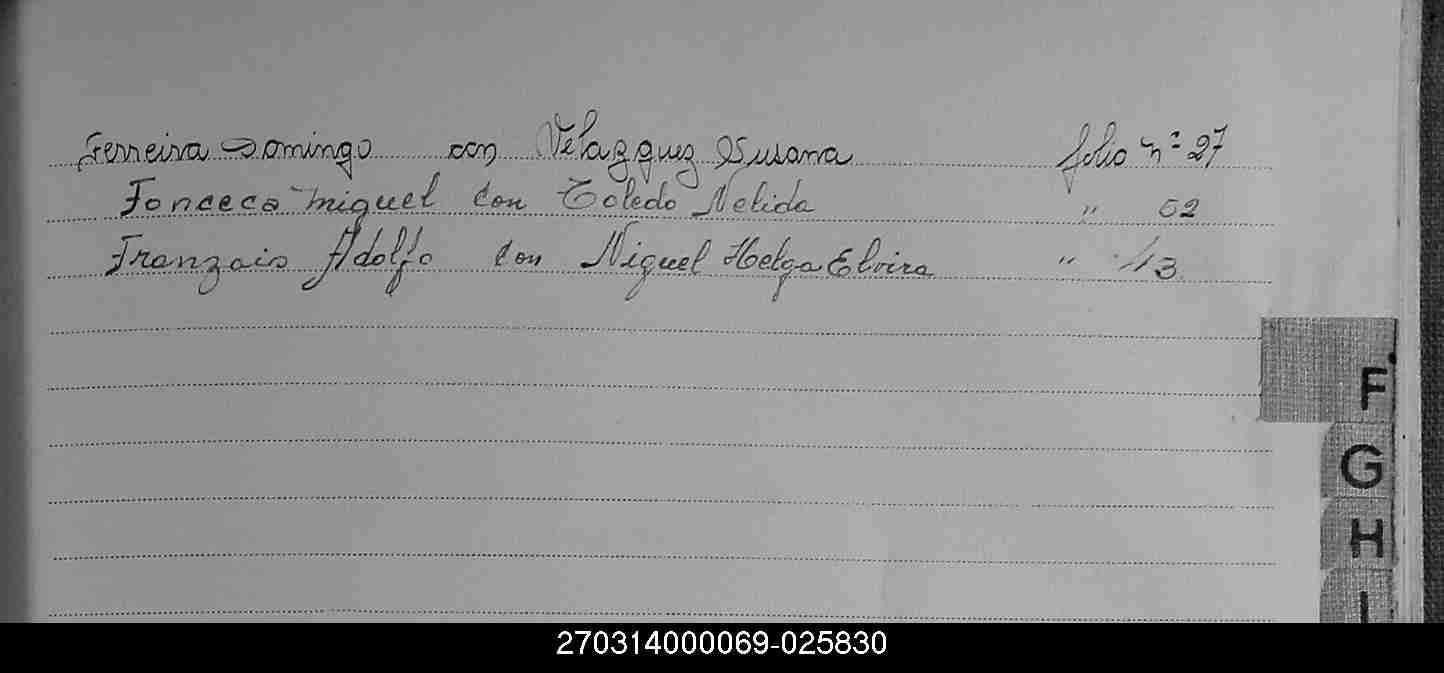 Ferreira Domingo con Velazquez Susana folio nº 27
Fonceca Miguel con Toledo Nelida " 52
Franzois Adolfo con Niguel Helga Elvira " 13
F
G
H
I
270314000069-025830